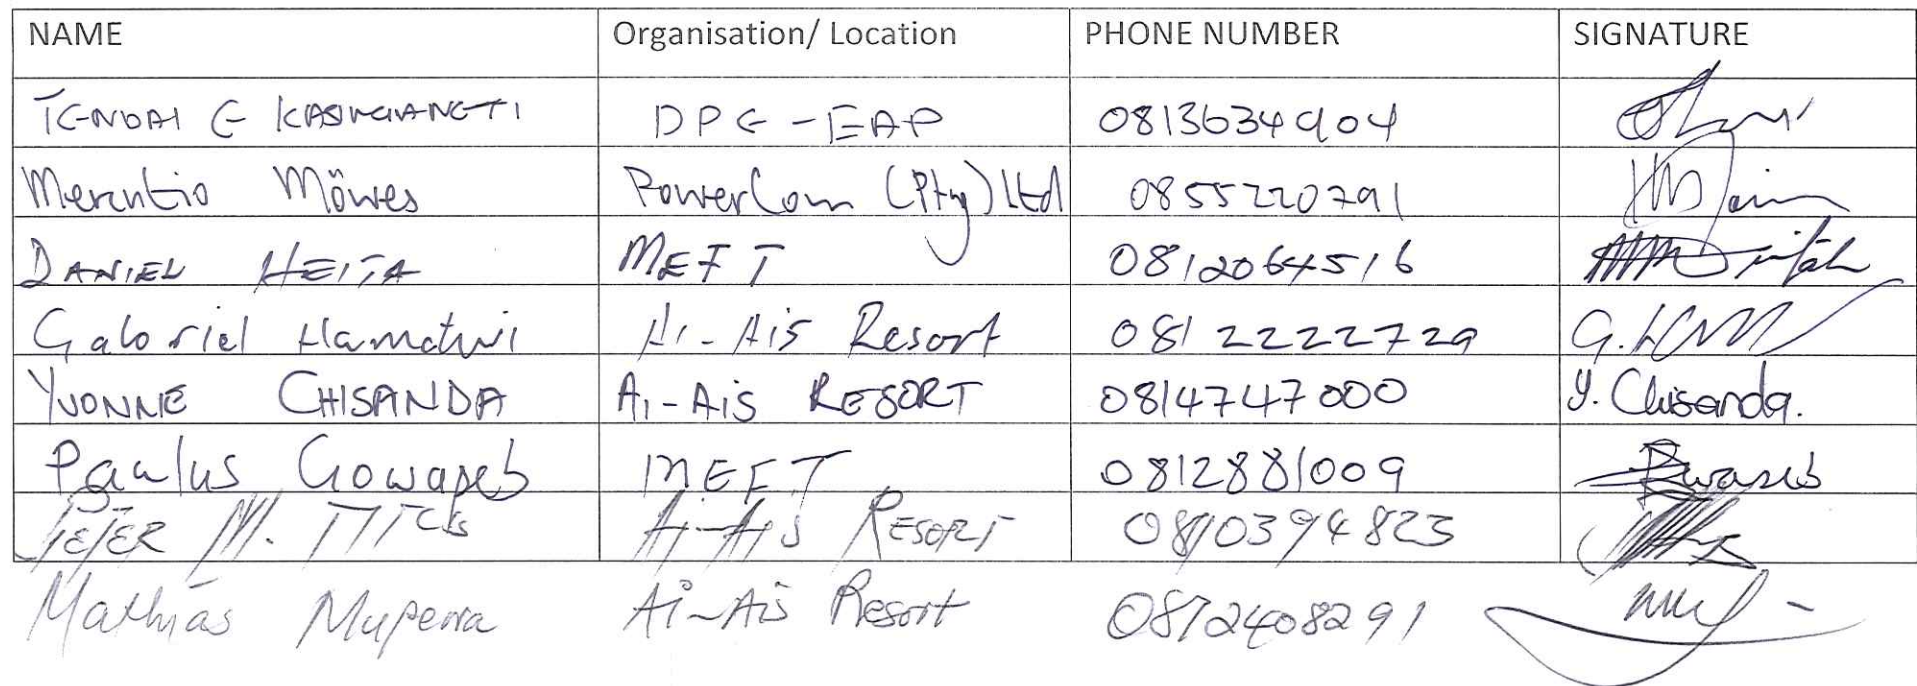 NAME Organisation/ Location PHONE NUMBER SIGNATURE
TENDAI E KASINGANETI DPG - EAP 0813634904
Merentio Möwes PowerCom (Pty) Ltd 0855220791
DANIEL HEITA MEFT 0812064516
Gabriel Hamatwi Ai-Ais Resort 0812222729
YVONNE CHISANDA Ai-Ais RESORT 0814747000 Y. Chisanda.
Paulus Gowaseb MEFT 0812881009
PETER M. Ai-Ais RESORT 0810394823
Mathias Ai-Ais Resort 0812408291